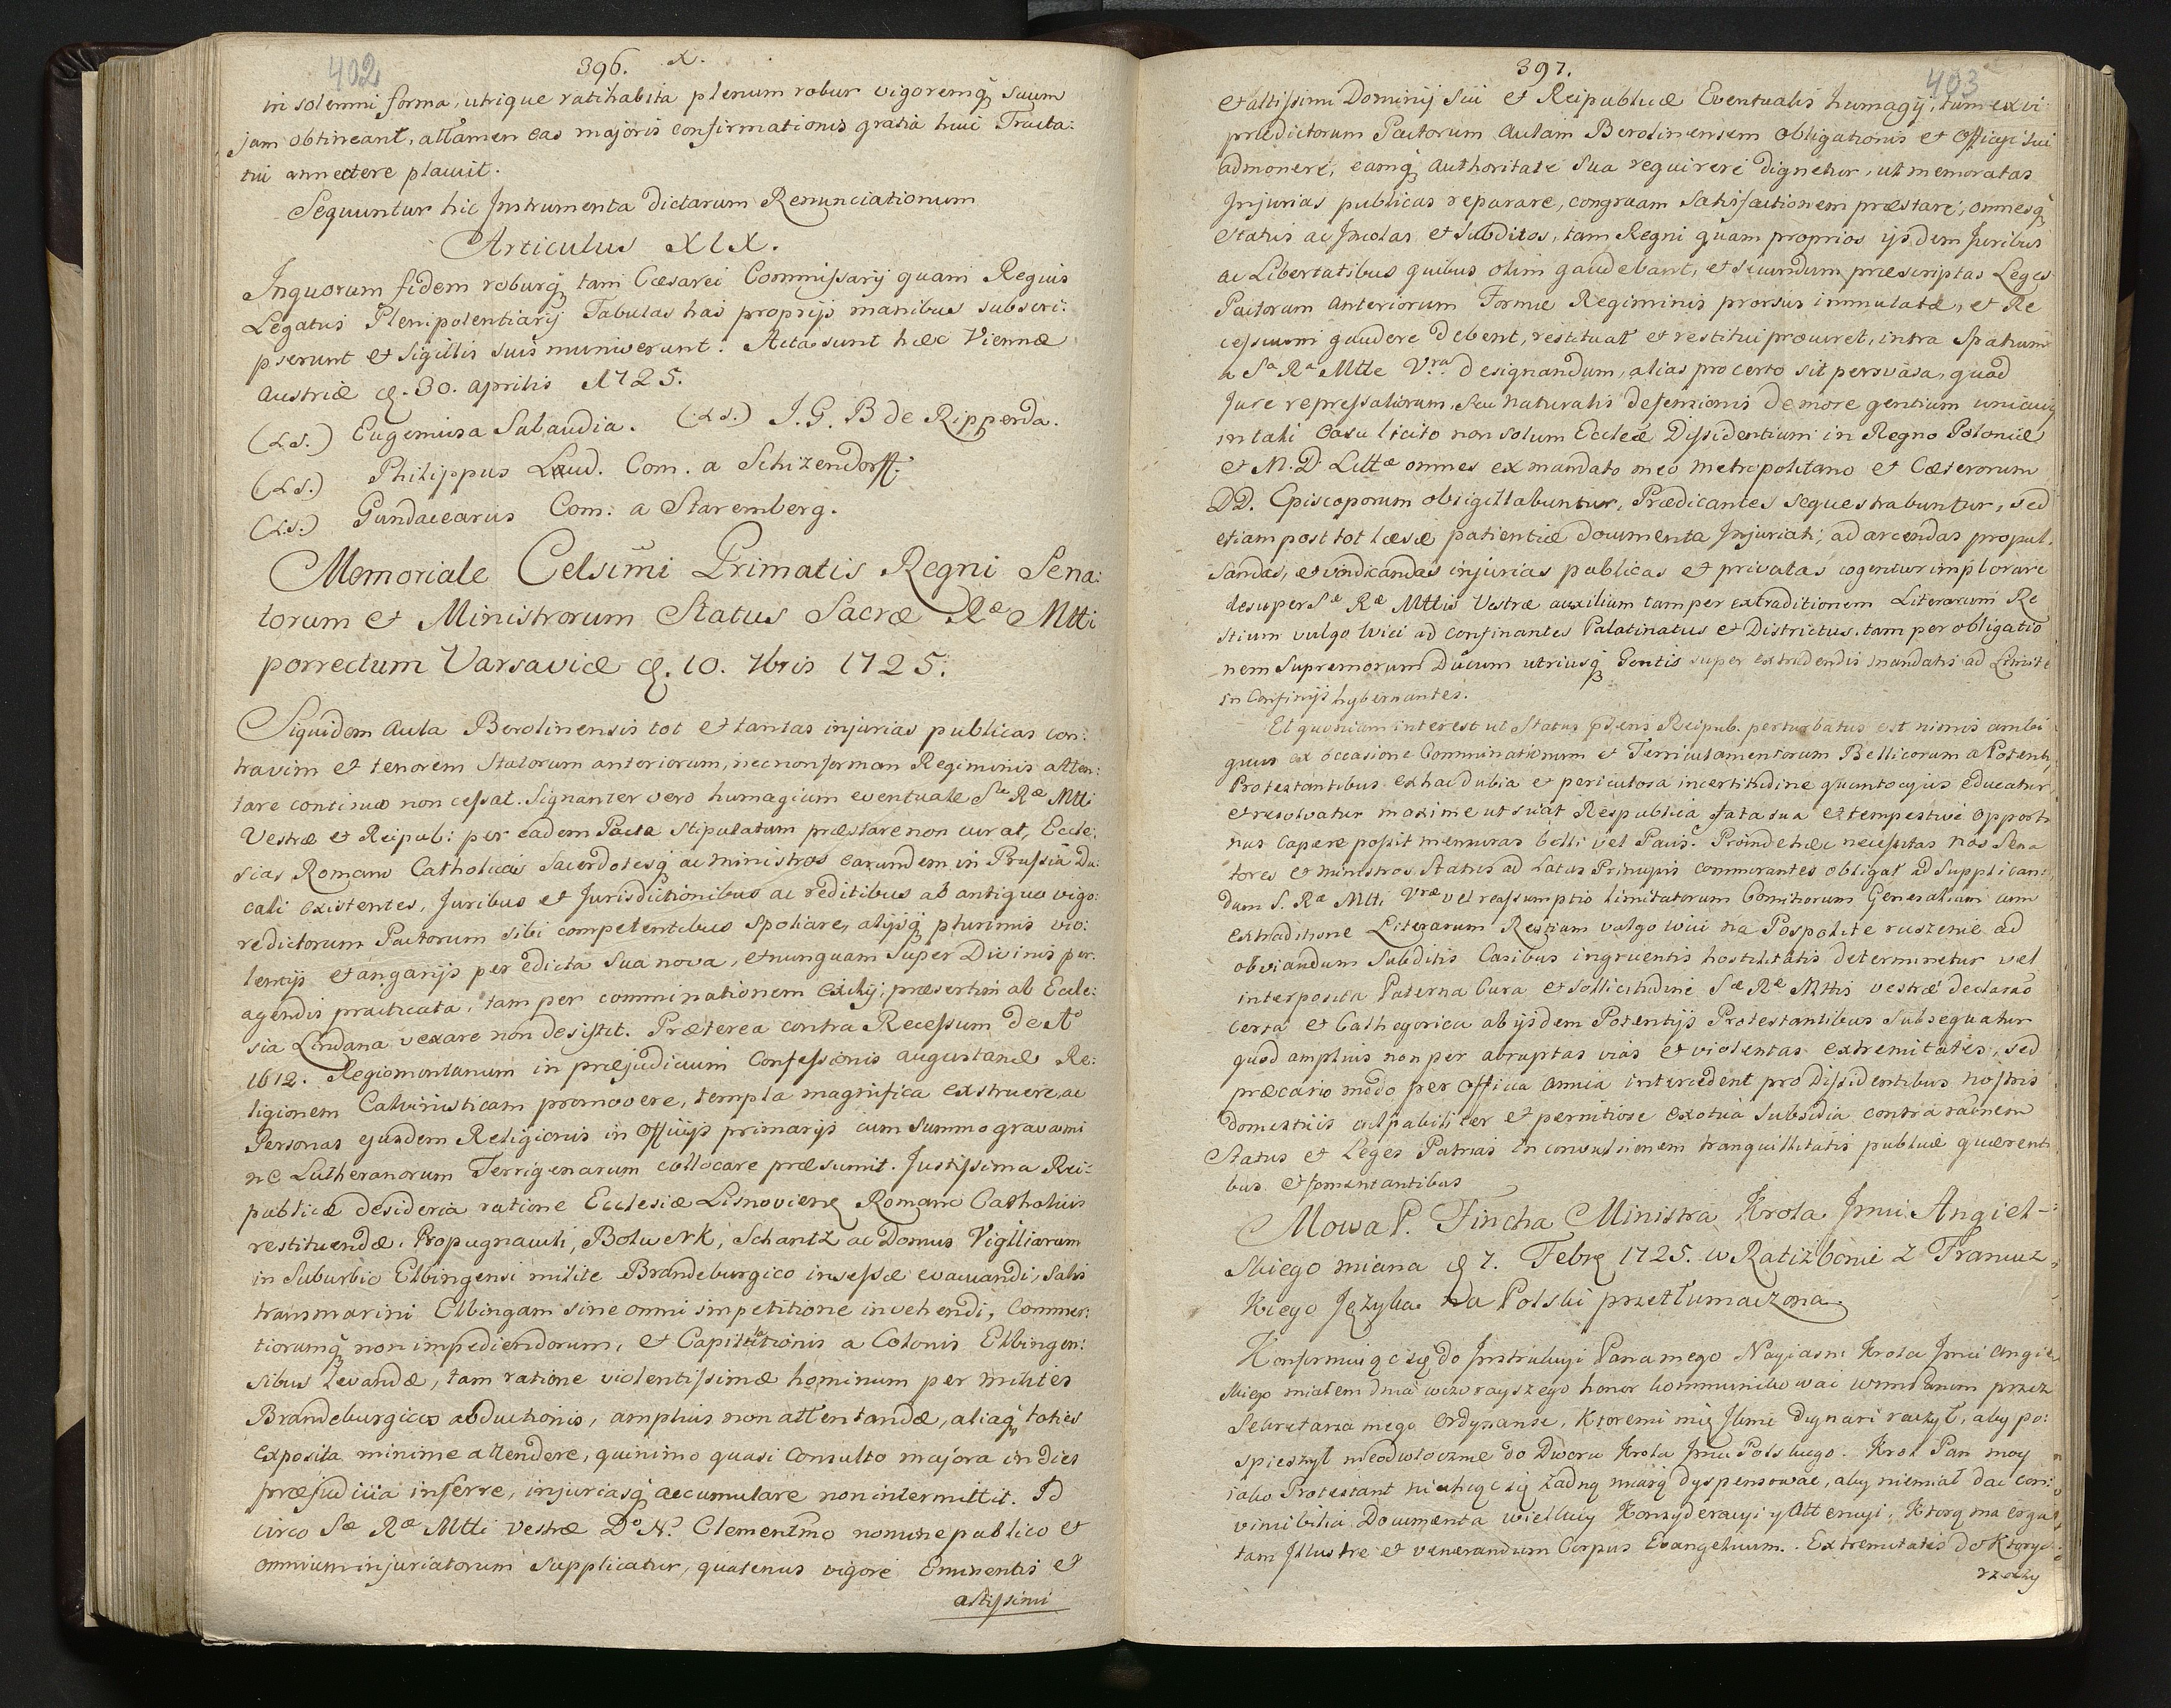 402
396. X.
in solemni forma, utrique ratihabita plenum robur vigoremq suum
jam obtineant, attamen eas majoris confirmationis gratia huic Tracta:
tui annectere placuit.
Sequuntur hic Instrumenta dictarum Renunciationum
Articulus XIX.
Inquorum fidem roburq tam Cæsarei Commissarij quam Regius
Legatus Plenipotentiarij Tabulas has proprijs manibus subscri:
pserunt et sigillis suis muniverunt. Acta sunt hæc Viennæ
Austriæ d. 30. aprilis 1725.
(LS.) Eugenius a Sabaudia. (LS.) J. G. B de Ripperda.
(LS.) Philippus Lud. Com. a Schizendorff.
(LS.) Gundacarus Com: a Staremberg.
Memoriale Celsimi Primatis Regni Sena:
torum et Ministrorum Status Sacræ Ræ Mtti
porrectum Varsaviæ d. 10. 7bris 1725.
Siquidem Aula Berolinensis tot et tantas injurias publicas con:
travim et tenorem Statorum anteriorum, necnon formam Regiminis atten:
tare continuo non cessat. Signanter vero humagium eventuale Sæ Ræ Mtti
Vestræ et Reipub: per eadem Pacta stipulatum præstare non curat, Eccle:
sias Romano Catholicas Sacerdotesq ac ministros earundem in Prussia Du:
cali existentes, Juribus et Jurisdictionibus ac reditibus ab antiquo vigo:
redictorum Pactorum sibi competentibus spoliare, alijsq plurimis vio:
lentijs et angarijs per edicta sua nova, et nunquam super Divinis per:
agendis practicata, tam per comminationem exilij, præsertim ab Eccle:
sia Lindana vexare non desistit. Præterea contra Recessum de Aº
1612. Regiomontanum in præjudicium Confessionis augustanæ Re:
ligionem Calvinisticam promovere, templa magnifica exstruere, ac
Personas ejusdem Religionis in officijs primarijs cum summo gravami
ne Lutheranorum Terrigenarum collocare præsumit. Justissima Rei:
publicæ desideria ratione Ecclesiæ Lisnoviens Romano Catholicis
restituendæ. Propugnaculi, Bolwerk, Schantz ac Domus Vigiliarum
in Suburbio Elbingensi milite Brandeburgico insessæ evacuandi, Salis
transmarini Elbingam sine omni impetitione invehendi, Commer:
tiorumq non impediendorum, et Capitationis a Colonis Elbingen:
sibus levandæ, tam ratione violentissimæ hominum per milites
Brandeburgicos abductionis, amplius non attentandæ, aliaq toties
exposita minime attendere, quinimo quasi consulto majora in dies
præjudicia inferre, injuriasq accumulare non intermittit. Id
circo Sæ Ræ Mtti Vestræ Dº N. Clementmo nomine publico et
omnium injuriatorum supplicatur, quatenus vigore Eminentis et
altissimi
397.
403
et altissimi Dominij sui et Reipublicæ Eventualis humagij, tum ex vi
prædictorum Pactorum aulam Berolinensem obligationis et Officij sui
admonere, eamq authoritate sua requirere dignetur, ut memoratas
Injurias publicas reparare, congruam satisfactionem præstare, omnesq
Status ac Incolas et Subditos, tam Regni quam proprios ijsdem Juribus
ac Libertatibus quibus olim gaudebant, et secundum præscriptas Leges
Pactorum anteriorum Formæ Regiminis prorsus immutatæ, et Re
cessuum gaudere debent, restituat et restitui procuret, intra spatium
a Sa Ra Mtte Vra designandum, alias pro certo sit persvasa, quod
Jure repressaliorum, seu naturalis defensionis de more gentium unicuiq
in tali casu licito non solum Ecclæ Dissidentium in Regno Poloniæ
et M. D. Littæ omnes ex mandato meo metropolitano et Cæterorum
DD. Episcoporum obsigillabuntur, Prædicantes sequestrabuntur, sed
etiam post tot læsæ patientiæ documenta Injuriati, ad arcendas propul
sandas, et vindicandas injurias publicas et privatas cogentur implorare
desuper Sæ Ræ Mttis Vestræ auxilium tam per extraditionem Literarum Re
stium vulgo Wici ad confinantes Palatinatus et Districtus, tam per obligatio
nem Supremorum Ducum utriusq Gentis super extradendis mandatis ad
in Confinijs hybernantes.
Et quoniam interest ut Status pstens Reipub. perturbatus et nimis ambi
guus ex occasione Comminationum et Terriculamentorum Bellicorum a Potentijs
Protestantibus ex hac dubia et periculosa incertitudine quantocyus educatur
et resolvatur maxime ut sciat Respublica fata sua et tempestive opportu
nas capere possit mensuras belli vel Pacis. Proinde hæc necessitas nos Sena
tores et ministros Status ad Latus Principis commorantes obligat ad Supplican
dum S. Ræ Mtti Vræ vel reassumptio limitatorum Comitiorum Generalium cum
extraditione Literarum Restium vulgo wici na Pospolite ruszenie ad
obviandum subditis Casibus ingruentis hostilitatis determinetur vel
interposita Paterna Cura et sollicitudine Sæ Ræ Mttis vestræ declarao
certa et Cathegorica ab ijsdem Potentijs Protestantibus subsequatur
quod amplius non per abruptas vias et violentas extremitates, sed
præcario modo per officia amica intercedent pro Dissidentibus nostris
domesticis culpabiliter et pernitiose exotica subsidia contra raonem
Status et Leges Patrias in convulsionem tranquillitatis publicæ quærenti
bus et fomentantibus
Mowa P. Fincha Ministra Krola Jmci Angiel-
skiego miana d 7. Febr 1725. w Ratizbonie z Francuz
kiego Języka na Polski przetłumaczona.
Konformuiąc się do Instrukcyi Pana mego Nayiasn: Krola Jmci Angiel
skiego miałem dnia wczorayszego honor kommunikować przez
Sekretarza mego Ordynanse, ktoremi mię Jkmc dignari raczył, aby po:
spieszył nieodwłocznie do Dworu Krola Jmci Polskiego. Krol Pan moy
iako Protestant niechcąc się żadną miarą dyspensować, aby niemiał dać con:
vincibilia Documenta wielkiey Konsyderacyi y Attencyi, ktorą ma erga
tam Illustre et venerandum Corpus Evangelicum. Extremitates do ktory
rzeczy